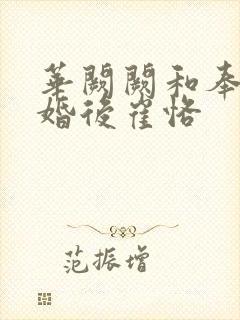 華闕闕和奉
婚後崔恪
范振增